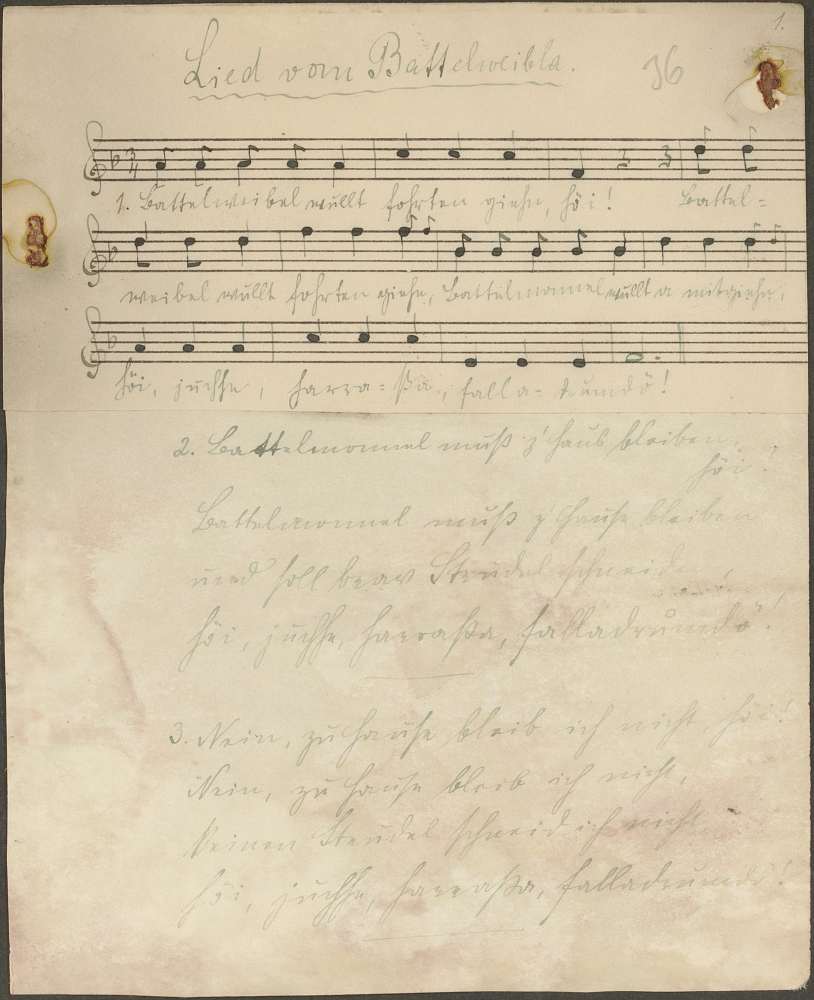 1.
Lied vom Battelweibla.
36
3/4
1. Battelweibel wullt fohrten giehn, höi! Battel=
weibel wullt fohrten giehn, Battelmonnel wullt a mitgiehn,
höi, juchhe, harra=ßa, falla=drumdö!
2. Battelmonnel muß z'Haus bleiben,
höi!
Battelmonnel muß z'Hause bleiben
und soll brav Strudel schneiden,
höi, juchhe, harraßa, falladrumdö!
3. Nein, zu Hause bleib ich nicht, höi!
Nein, zu Hause bleib ich nicht,
keinen Strudel schneid ich nicht
höi, juchhe, harraßa, falladrumdö!